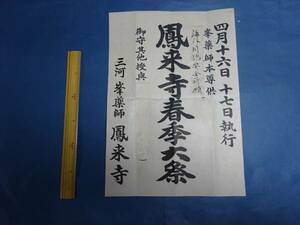 四月十六日 十七日執行
峯薬師本尊供
海外同胞安全祈願
鳳来寺春季大祭
御守其他授与
三河 峯薬師 鳳来寺